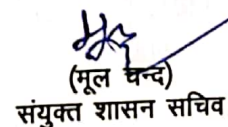 (मूल चन्द)
संयुक्त शासन सचिव